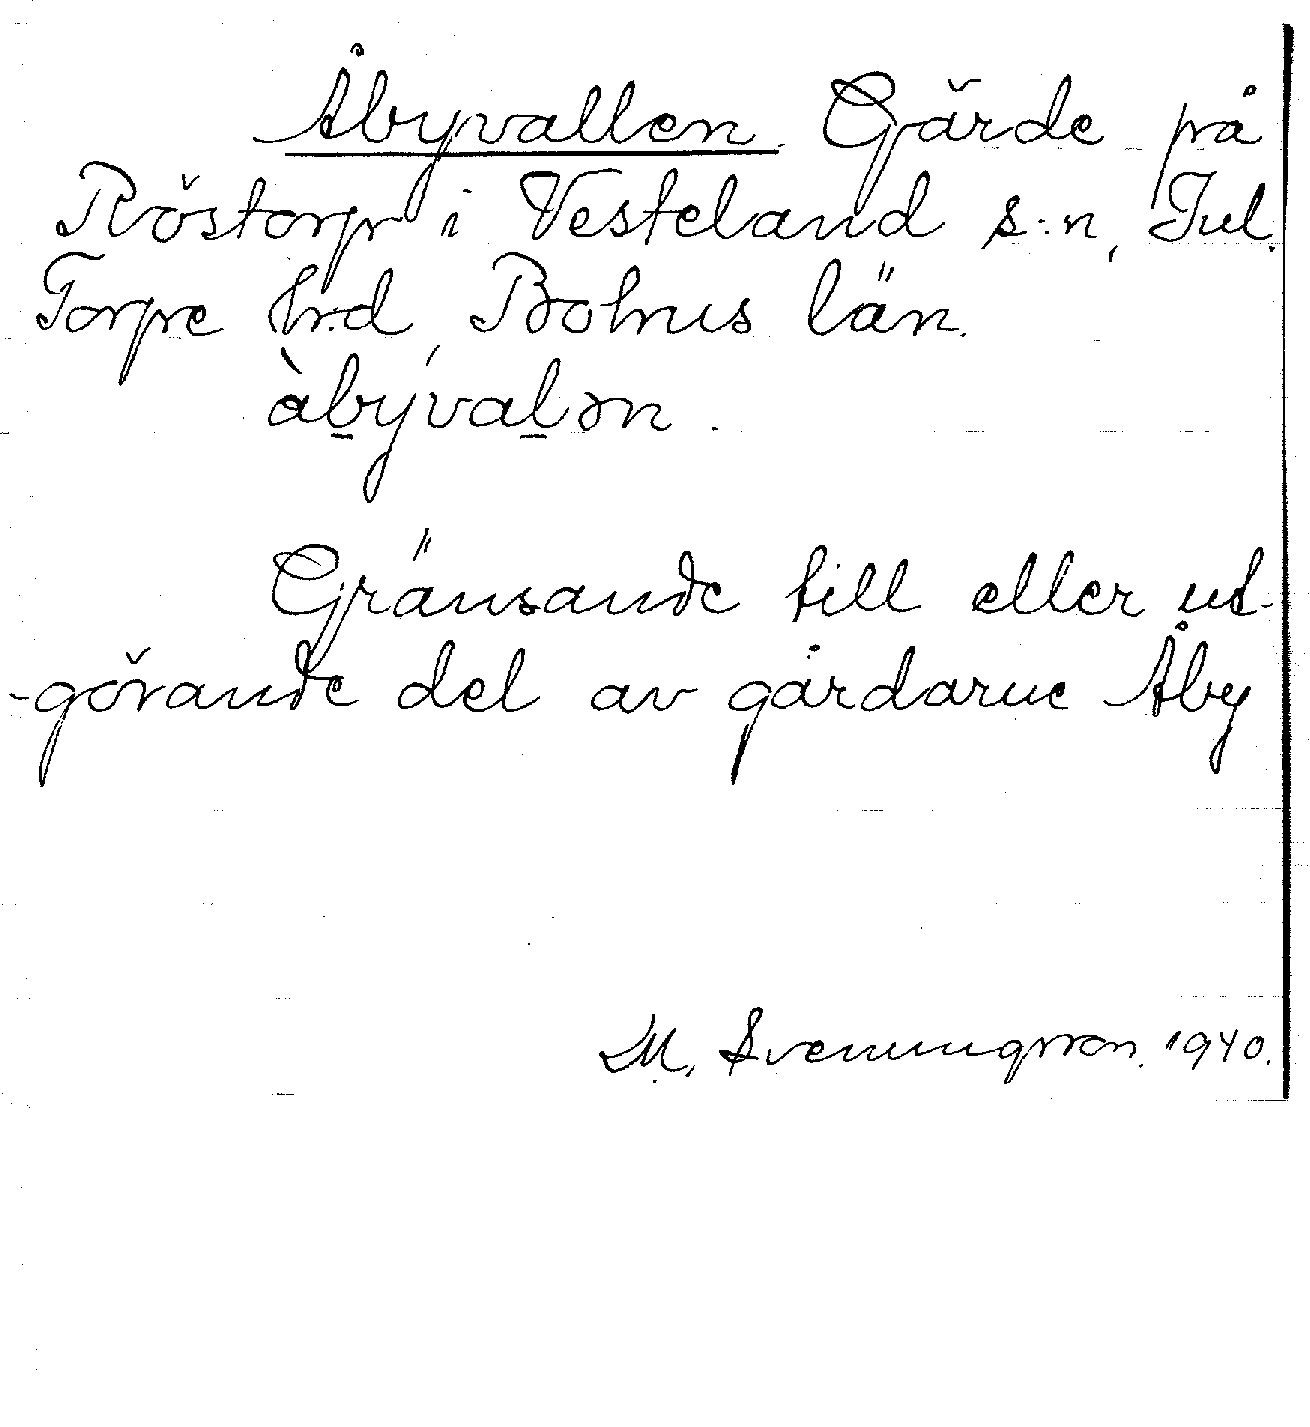 Åbyvallen. Gärde på
Röstorp i Vesteland s:n, Inl.
Torpe hrd, Bohus län.
àby̌valən.
Gränsande till eller ut-
-görande del av gårdarne Åby
M. Svenungsson. 1940.